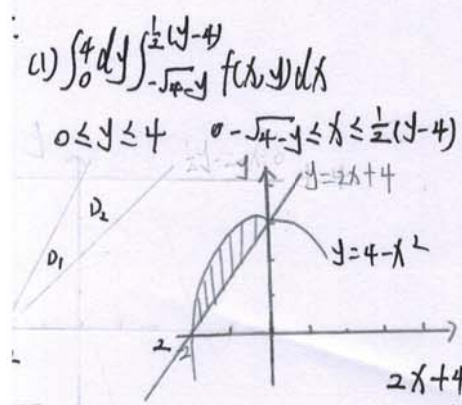 (1) ∫₀⁴dy∫_{-√4-y}^{½(y-4)} f(x,y)dx
0≤y≤4 -√4-y≤x≤½(y-4)
y=2x+4
D₂
D₁
y=4-x²
2 -2
2x+4